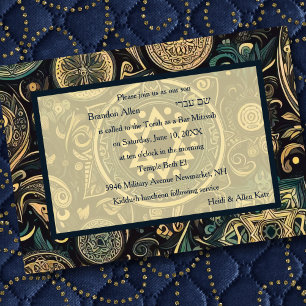 Please join us as our son
Brandon Allen שם עברי
is called to the Torah as a Bar Mitzvah
on Saturday, June 10, 20XX
at ten o'clock in the morning
Temple Beth El
5946 Military Avenue Newmarket, NH
Kiddush luncheon following service
Heidi & Allen Katz